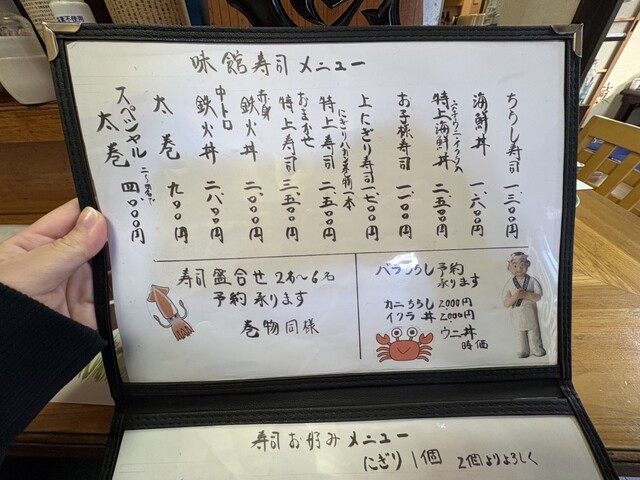 味館寿司メニュー
ちらし寿司 一、三〇〇円
海鮮丼 一、六〇〇円
特上海鮮丼 二、五〇〇円
お子様寿司 一、一〇〇円
上にぎり寿司 一、七〇〇円
にぎり八ヶ 巻物一本
特上寿司 二、五〇〇円
おまかせ
特上寿司 三、五〇〇円
赤身
鉄火丼 二、〇〇〇円
中トロ
鉄火丼 二、八〇〇円
太巻 九〇〇円
スペシャル
太巻 四、〇〇〇円
寿司盛合せ 2名〜6名
予約承ります
巻物同様
バラちらし 予約
承ります
カニちらし 2,000円
イクラ丼 2,000円
ウニ丼
時価
寿司お好みメニュー
にぎり 1個 2個よりよろしく